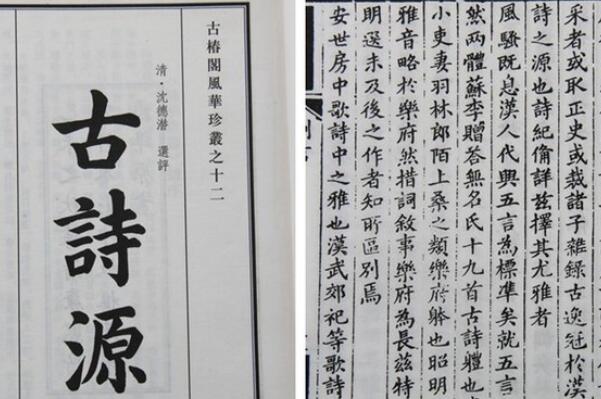 古椿閣風華珍叢之十二
清·沈德潜 選評
古詩源
采者或取正史或裁諸子雜錄古逸冠於漢
詩之源也詩紀俻詳茲擇其尤雅者
風騷既息漢人代興五言為標準矣就五言
然兩體蘇李贈荅無名氏十九首古詩軆也
小吏妻羽林郎陌上桑之類樂府躰也昭明
雅音略於樂府然措詞敘事樂府為長茲特
明選未及後之作者知所區別焉
安世房中歌詩中之雅也漢武郊祀等歌詩